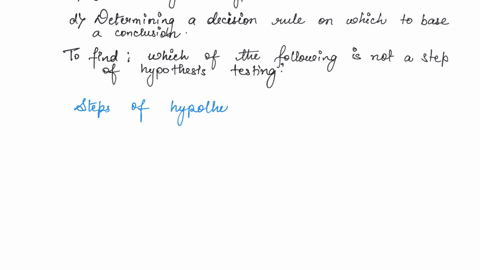 d) Determining a decision rule on which to base
a conclusion.
To find : which of the following is not a step
of hypothesis testing.
Steps of hypothe